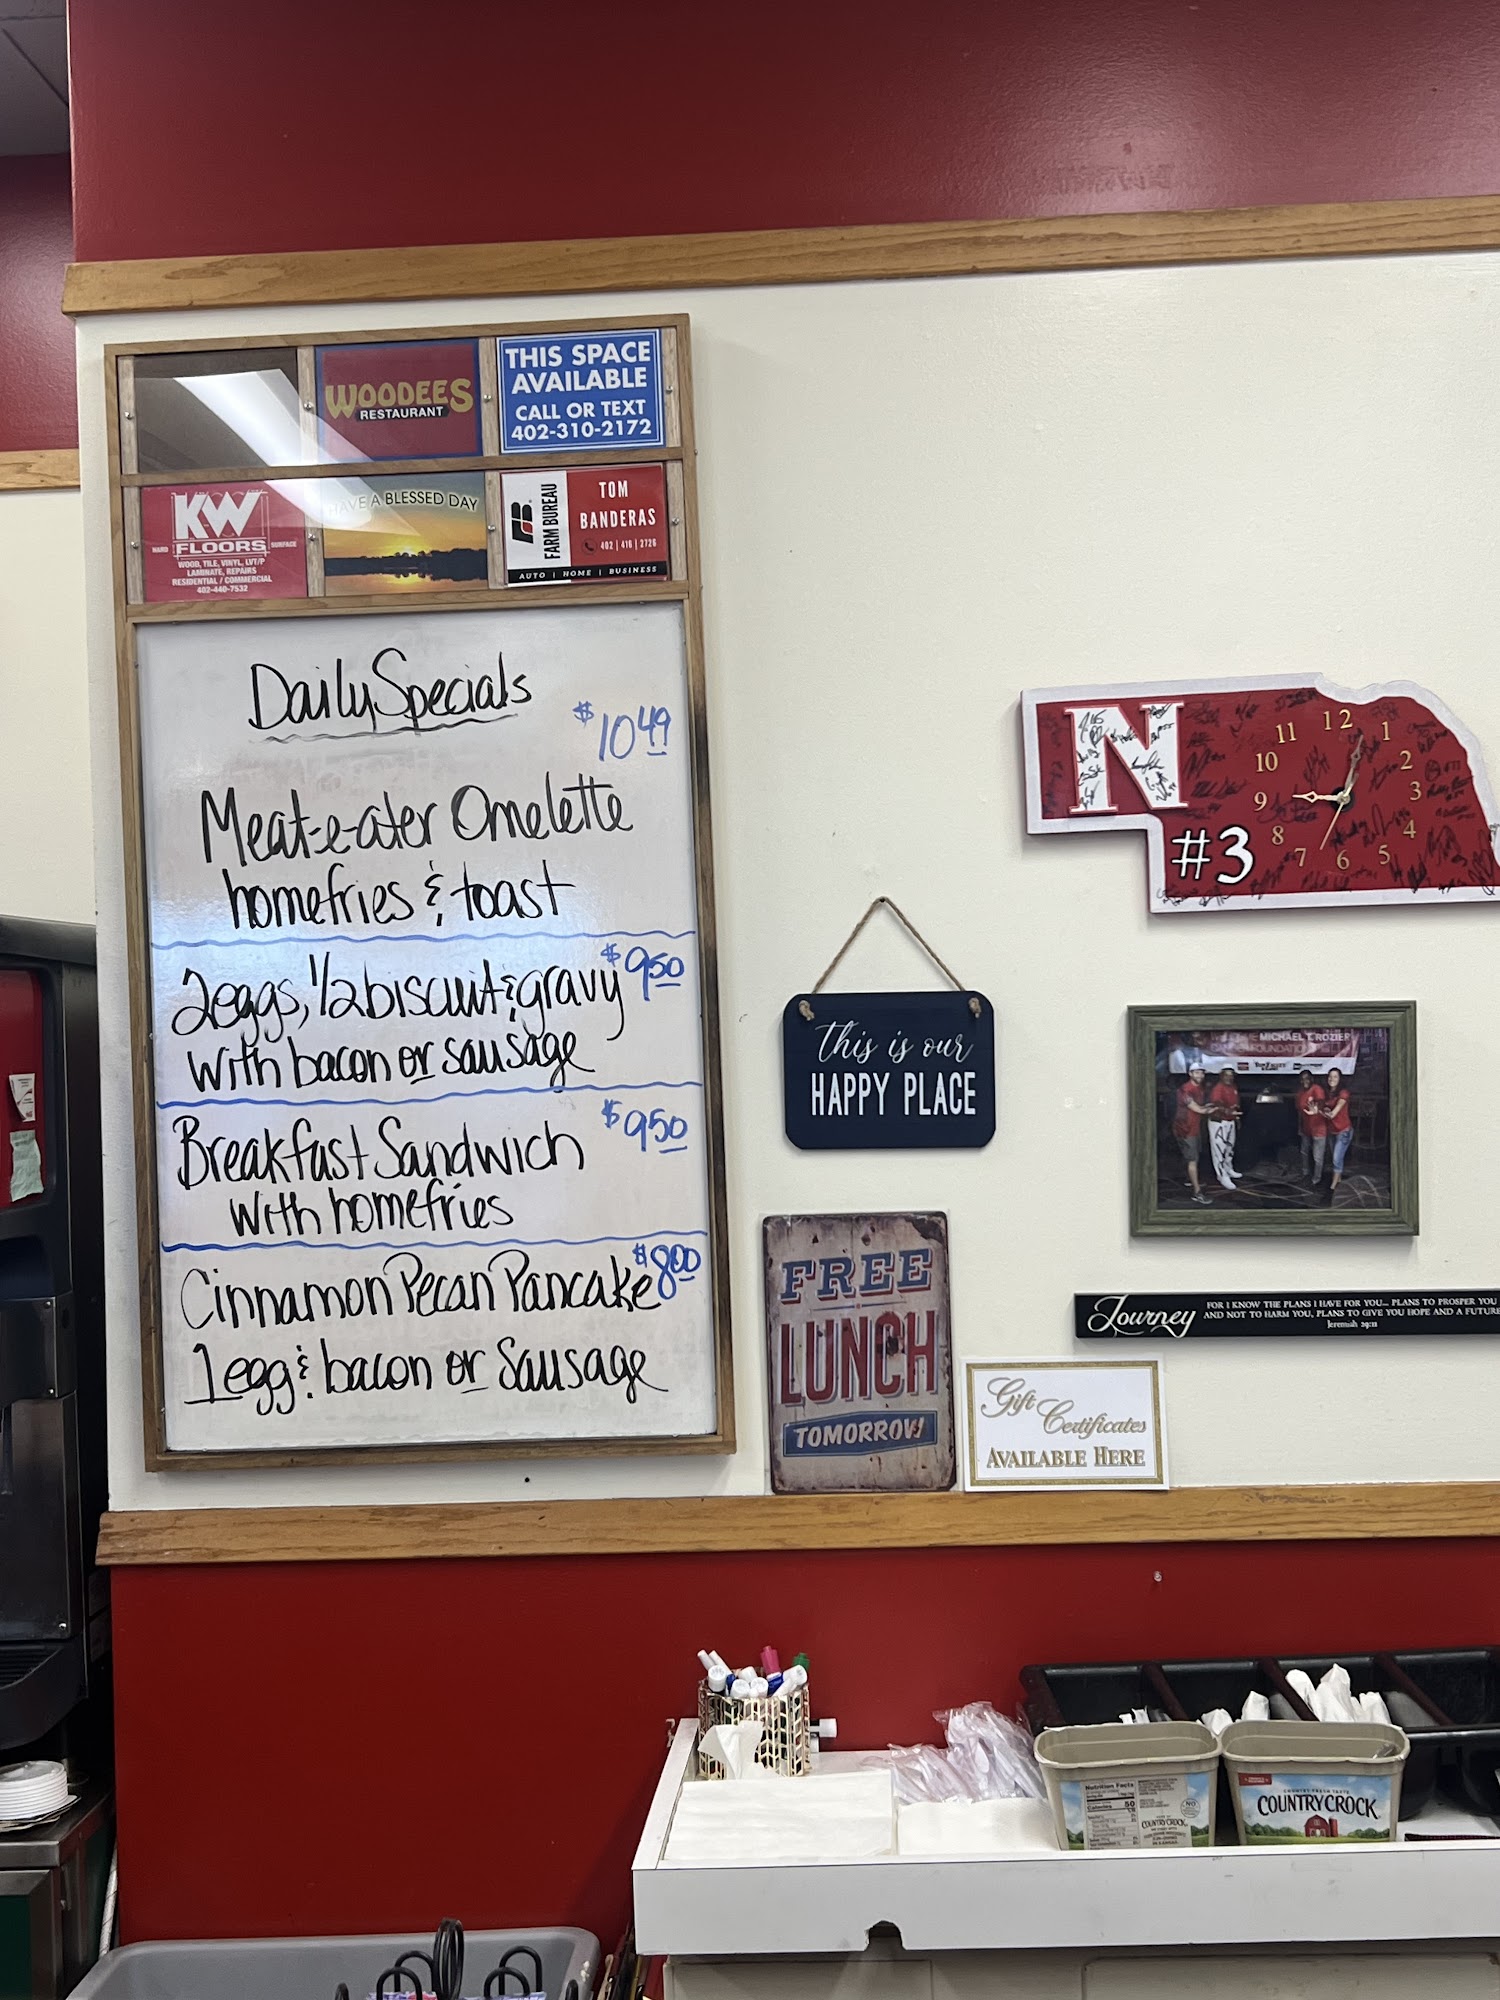 WOODEES
RESTAURANT
THIS SPACE
AVAILABLE
CALL OR TEXT
402-310-2172
KW
HARD FLOORS SURFACE
WOOD, TILE, VINYL, LVT/P
LAMINATE, REPAIRS
RESIDENTIAL / COMMERCIAL
402-440-7532
HAVE A BLESSED DAY
FARM BUREAU
TOM
BANDERAS
402 | 416 | 2726
AUTO | HOME | BUSINESS
Daily Specials
$10.49
Meat-e-ater Omelette
homefries & toast
2 eggs, 1/2 biscuit & gravy $9.50
with bacon or sausage
Breakfast Sandwich $9.50
with homefries
Cinnamon Pecan Pancake $8.00
1 egg & bacon or sausage
N
#3
12
1
2
3
4
5
6
7
8
9
10
11
this is our
HAPPY PLACE
MICHAEL CROZIER
FOUNDATION
FREE
LUNCH
TOMORROW
Journey
FOR I KNOW THE PLANS I HAVE FOR YOU... PLANS TO PROSPER YOU
AND NOT TO HARM YOU, PLANS TO GIVE YOU HOPE AND A FUTURE
Jeremiah 29:11
Gift
Certificates
AVAILABLE HERE
Nutrition Facts
Calories 50
COUNTRY CROCK
COUNTRY CROCK